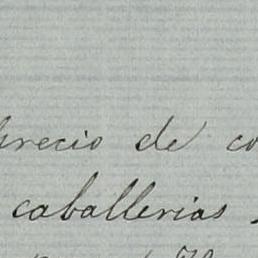 precio de
caballerias